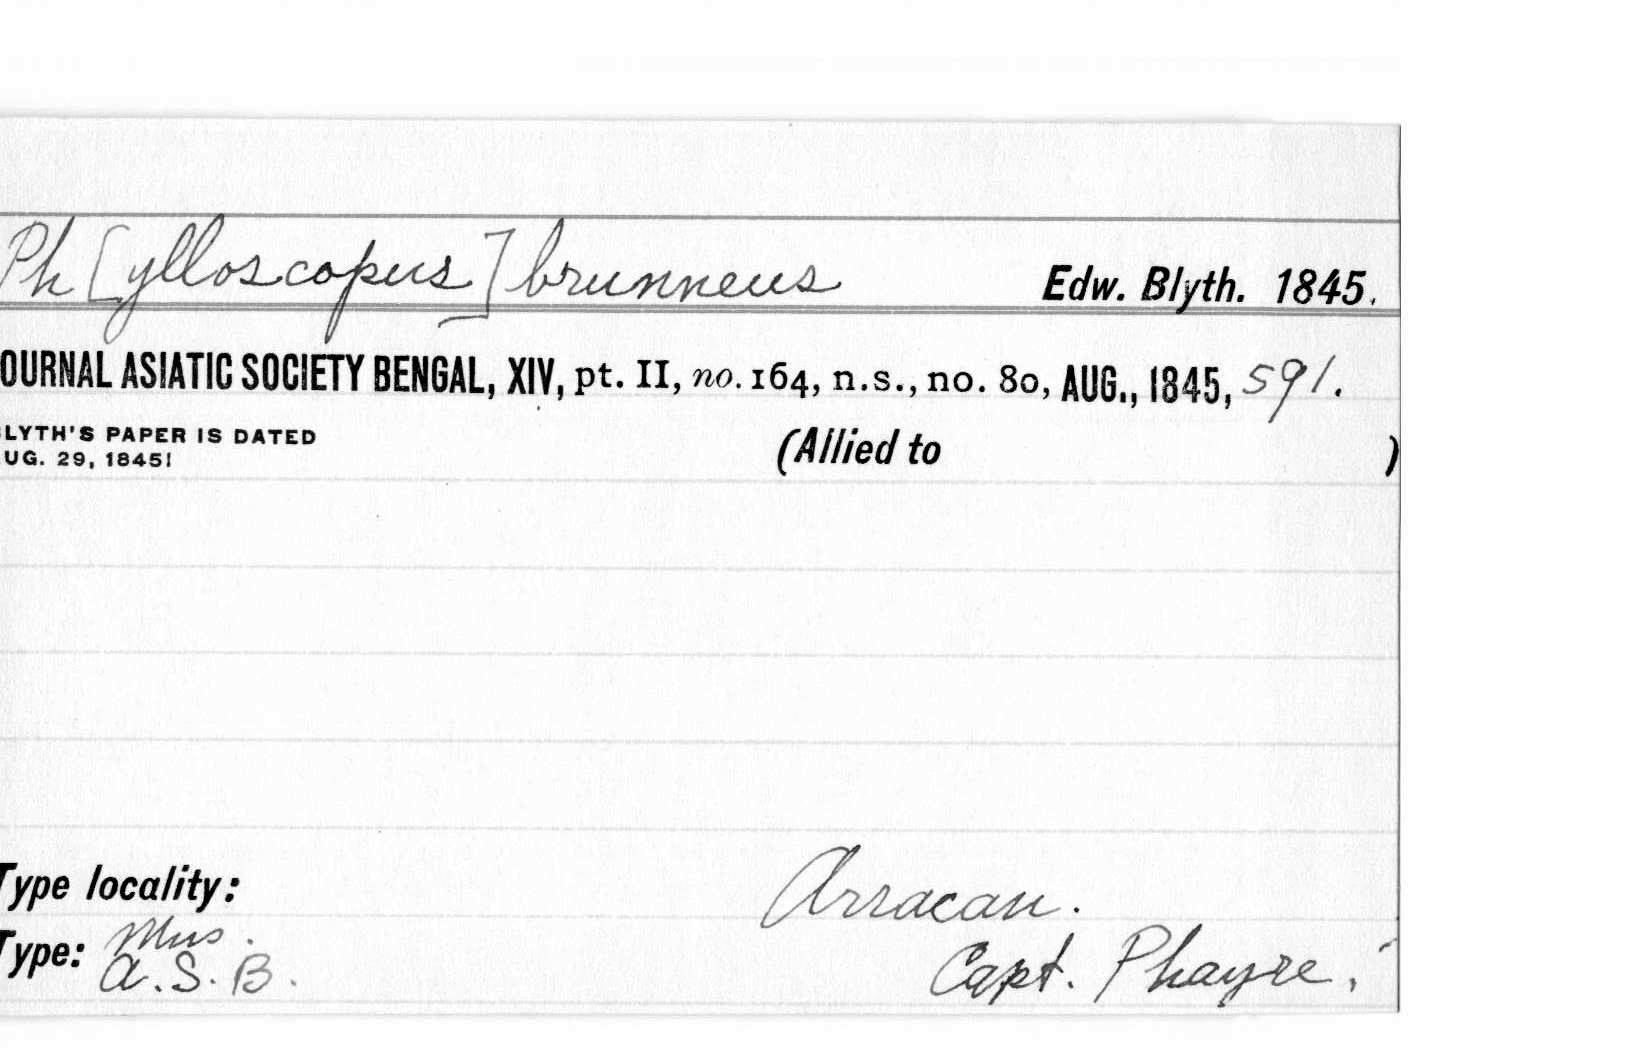 Ph[ylloscopus] brunneus Edw. Blyth. 1845.
OURNAL ASIATIC SOCIETY BENGAL, XIV, pt. II, no. 164, n.s., no. 80, AUG., 1845, 591.
LYTH'S PAPER IS DATED
UG. 29, 1845! (Allied to )
Type locality: Arracan.
Type: Mus. A.S.B. Capt. Phayre.